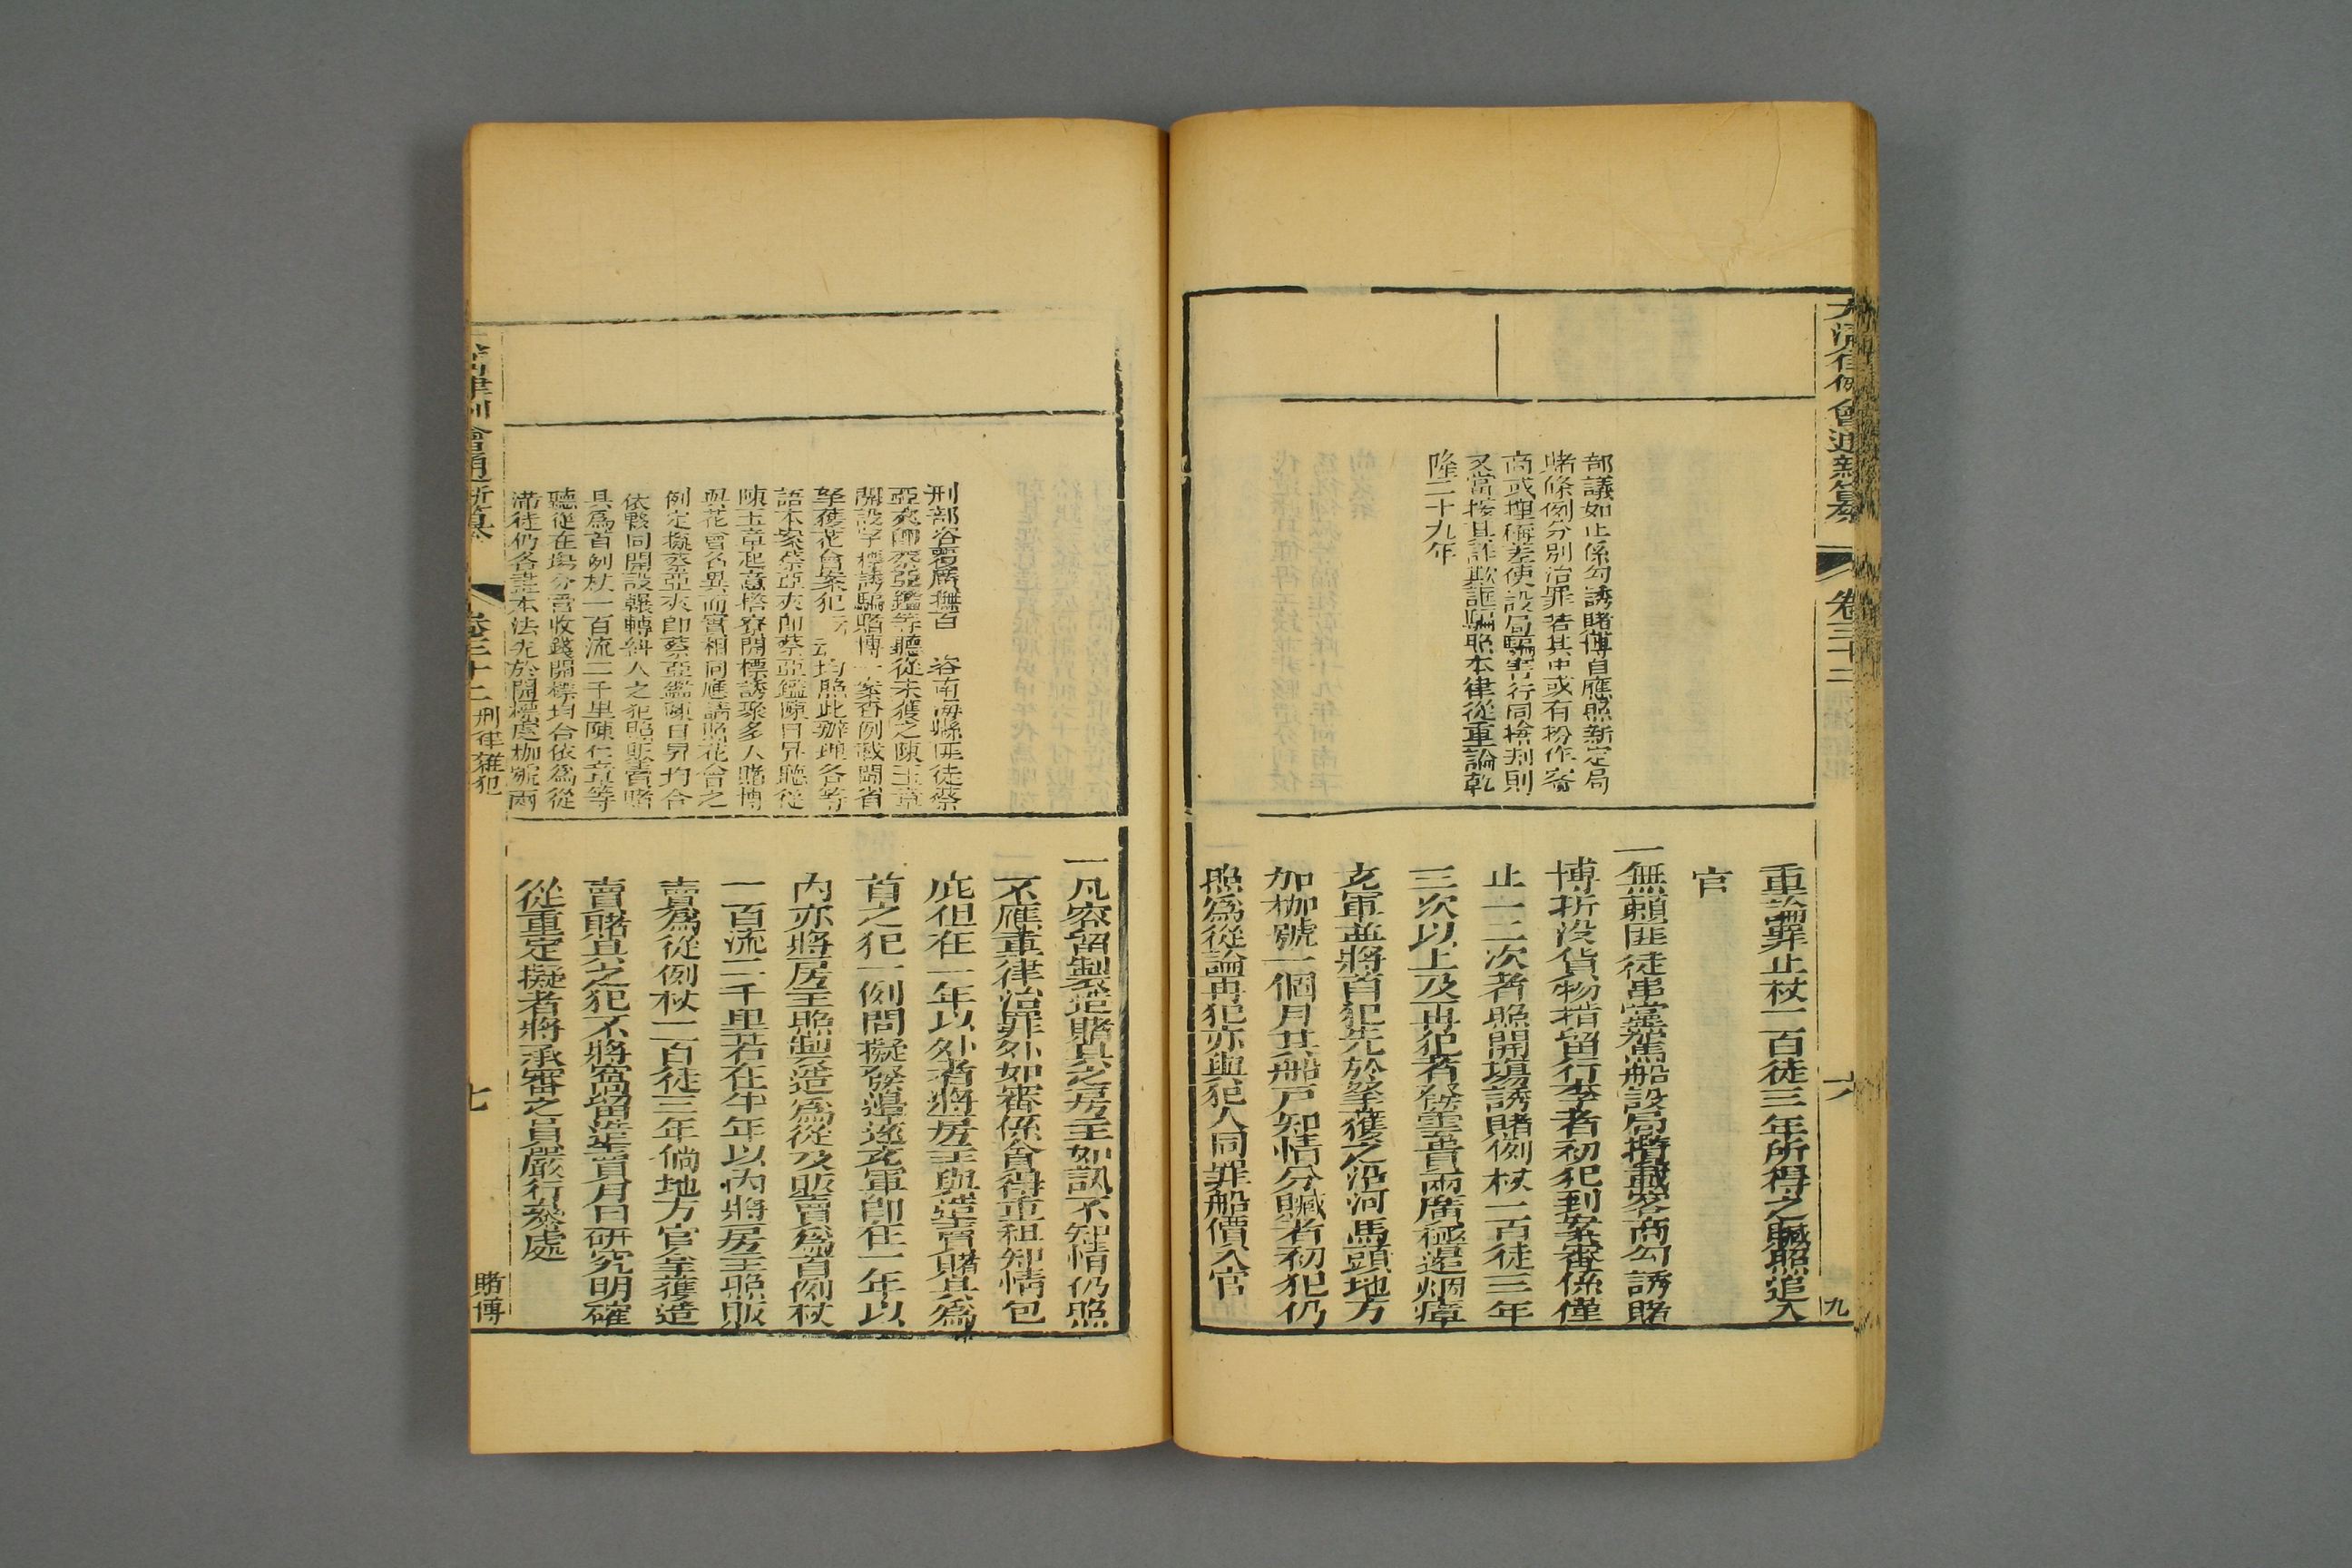 大清律例會通新纂
卷三十二
六
九
部議如止係勾誘賭博自應照新定局
賭條例分別治罪若其中或有扮作客
商或捏稱差使設局騙害行同搶刦則
又當按其詐欺誆騙照本律從重論乾
隆二十九年
重論罪止杖一百徒三年所得之贓照追入
官
一無賴匪徒串黨駕船設局攬載客商勾誘賭
博折沒貨物掯留行李者初犯到案審係僅
止一二次者照開場誘賭例杖一百徒三年
三次以上及再犯者發雲貴兩廣極邊烟瘴
充軍並將首犯先於拏獲之沿河馬頭地方
加枷號一個月其船戶知情分贓者初犯仍
照為從論再犯亦與犯人同罪船價入官
刑部咨覆廣撫百 咨南海縣匪徒蔡
亞夾即蔡亞鑑等聽從未獲之陳玉章
開設字標誘騙賭博一案查例載閩省
拏獲花會案犯 均照此辦理各等
語本案蔡亞夾即蔡亞鑑陳日昇聽從
陳玉章起意搭寮開標誘聚多人賭博
與花會名異而實相同應請照花會之
例定擬蔡亞夾即蔡亞鑑陳日昇均合
依夥同開設輾轉糾人之犯照販賣賭
具為首例杖一百流二千里陳仁章等
聽從在塲分管收錢開標均合依為從
滿徒仍各盡本法先於開標處枷號兩
一凡窩留製造賭具之房主如訊不知情仍照
不應重律治罪外如審係貪得重租知情包
庇但在一年以外者將房主與造賣賭具為
首之犯一例問擬發邊遠充軍卽在一年以
內亦將房主照製造為從及販賣為首例杖
一百流二千里若在半年以內將房主照販
賣為從例杖一百徒三年倘地方官拏獲造
賣賭具之犯不將窩留造賣月日研究明確
從重定擬者將承審之員嚴行叅處
大清律例會通新纂
卷三十二 刑律雜犯
七
賭博